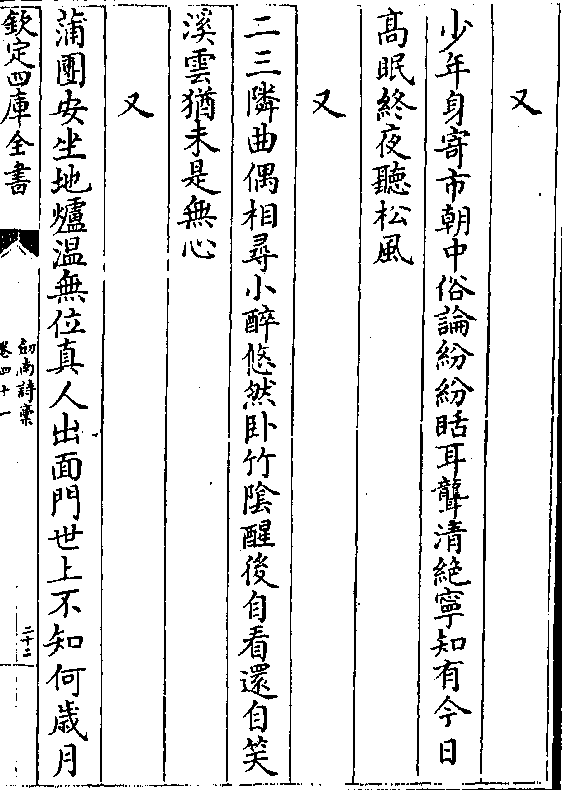 又
少年身寄市朝中俗論紛紛聒耳聾清絶寧知有今日
高眠終夜聽松風
又
二三隣曲偶相尋小醉悠然卧竹陰醒後自看還自笑
溪雲猶未是無心
又
蒲團安坐地爐温無位真人出面門世上不知何歳月
欽定四庫全書
劍南詩藁
卷四十一
二十二